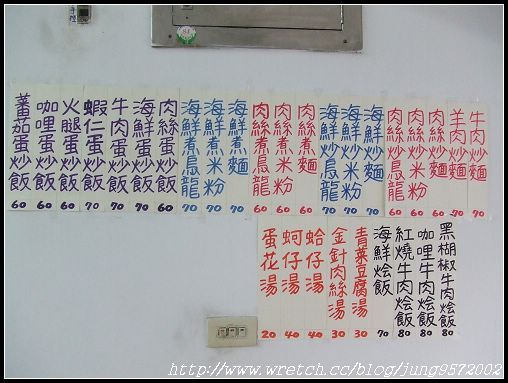 牛肉炒麵 70
羊肉炒麵 70
肉絲炒麵 60
肉絲炒米粉 60
肉絲炒烏龍 60
海鮮炒麵 70
海鮮炒米粉 70
海鮮炒烏龍 70
肉絲煮麵 60
肉絲煮米粉 60
肉絲煮烏龍 60
海鮮煮麵 70
海鮮煮米粉 70
海鮮煮烏龍 70
肉絲蛋炒飯 60
海鮮蛋炒飯 70
牛肉蛋炒飯 70
蝦仁蛋炒飯 70
火腿蛋炒飯 60
咖哩蛋炒飯 60
蕃茄蛋炒飯 60
黑椒牛肉燴飯 80
咖哩牛肉燴飯 80
紅燒牛肉燴飯 80
海鮮燴飯 70
青菜豆腐湯 30
金針肉絲湯 30
蛤仔湯 40
蚵仔湯 40
蛋花湯 20
http://www.wretch.cc/blog/jung9572002